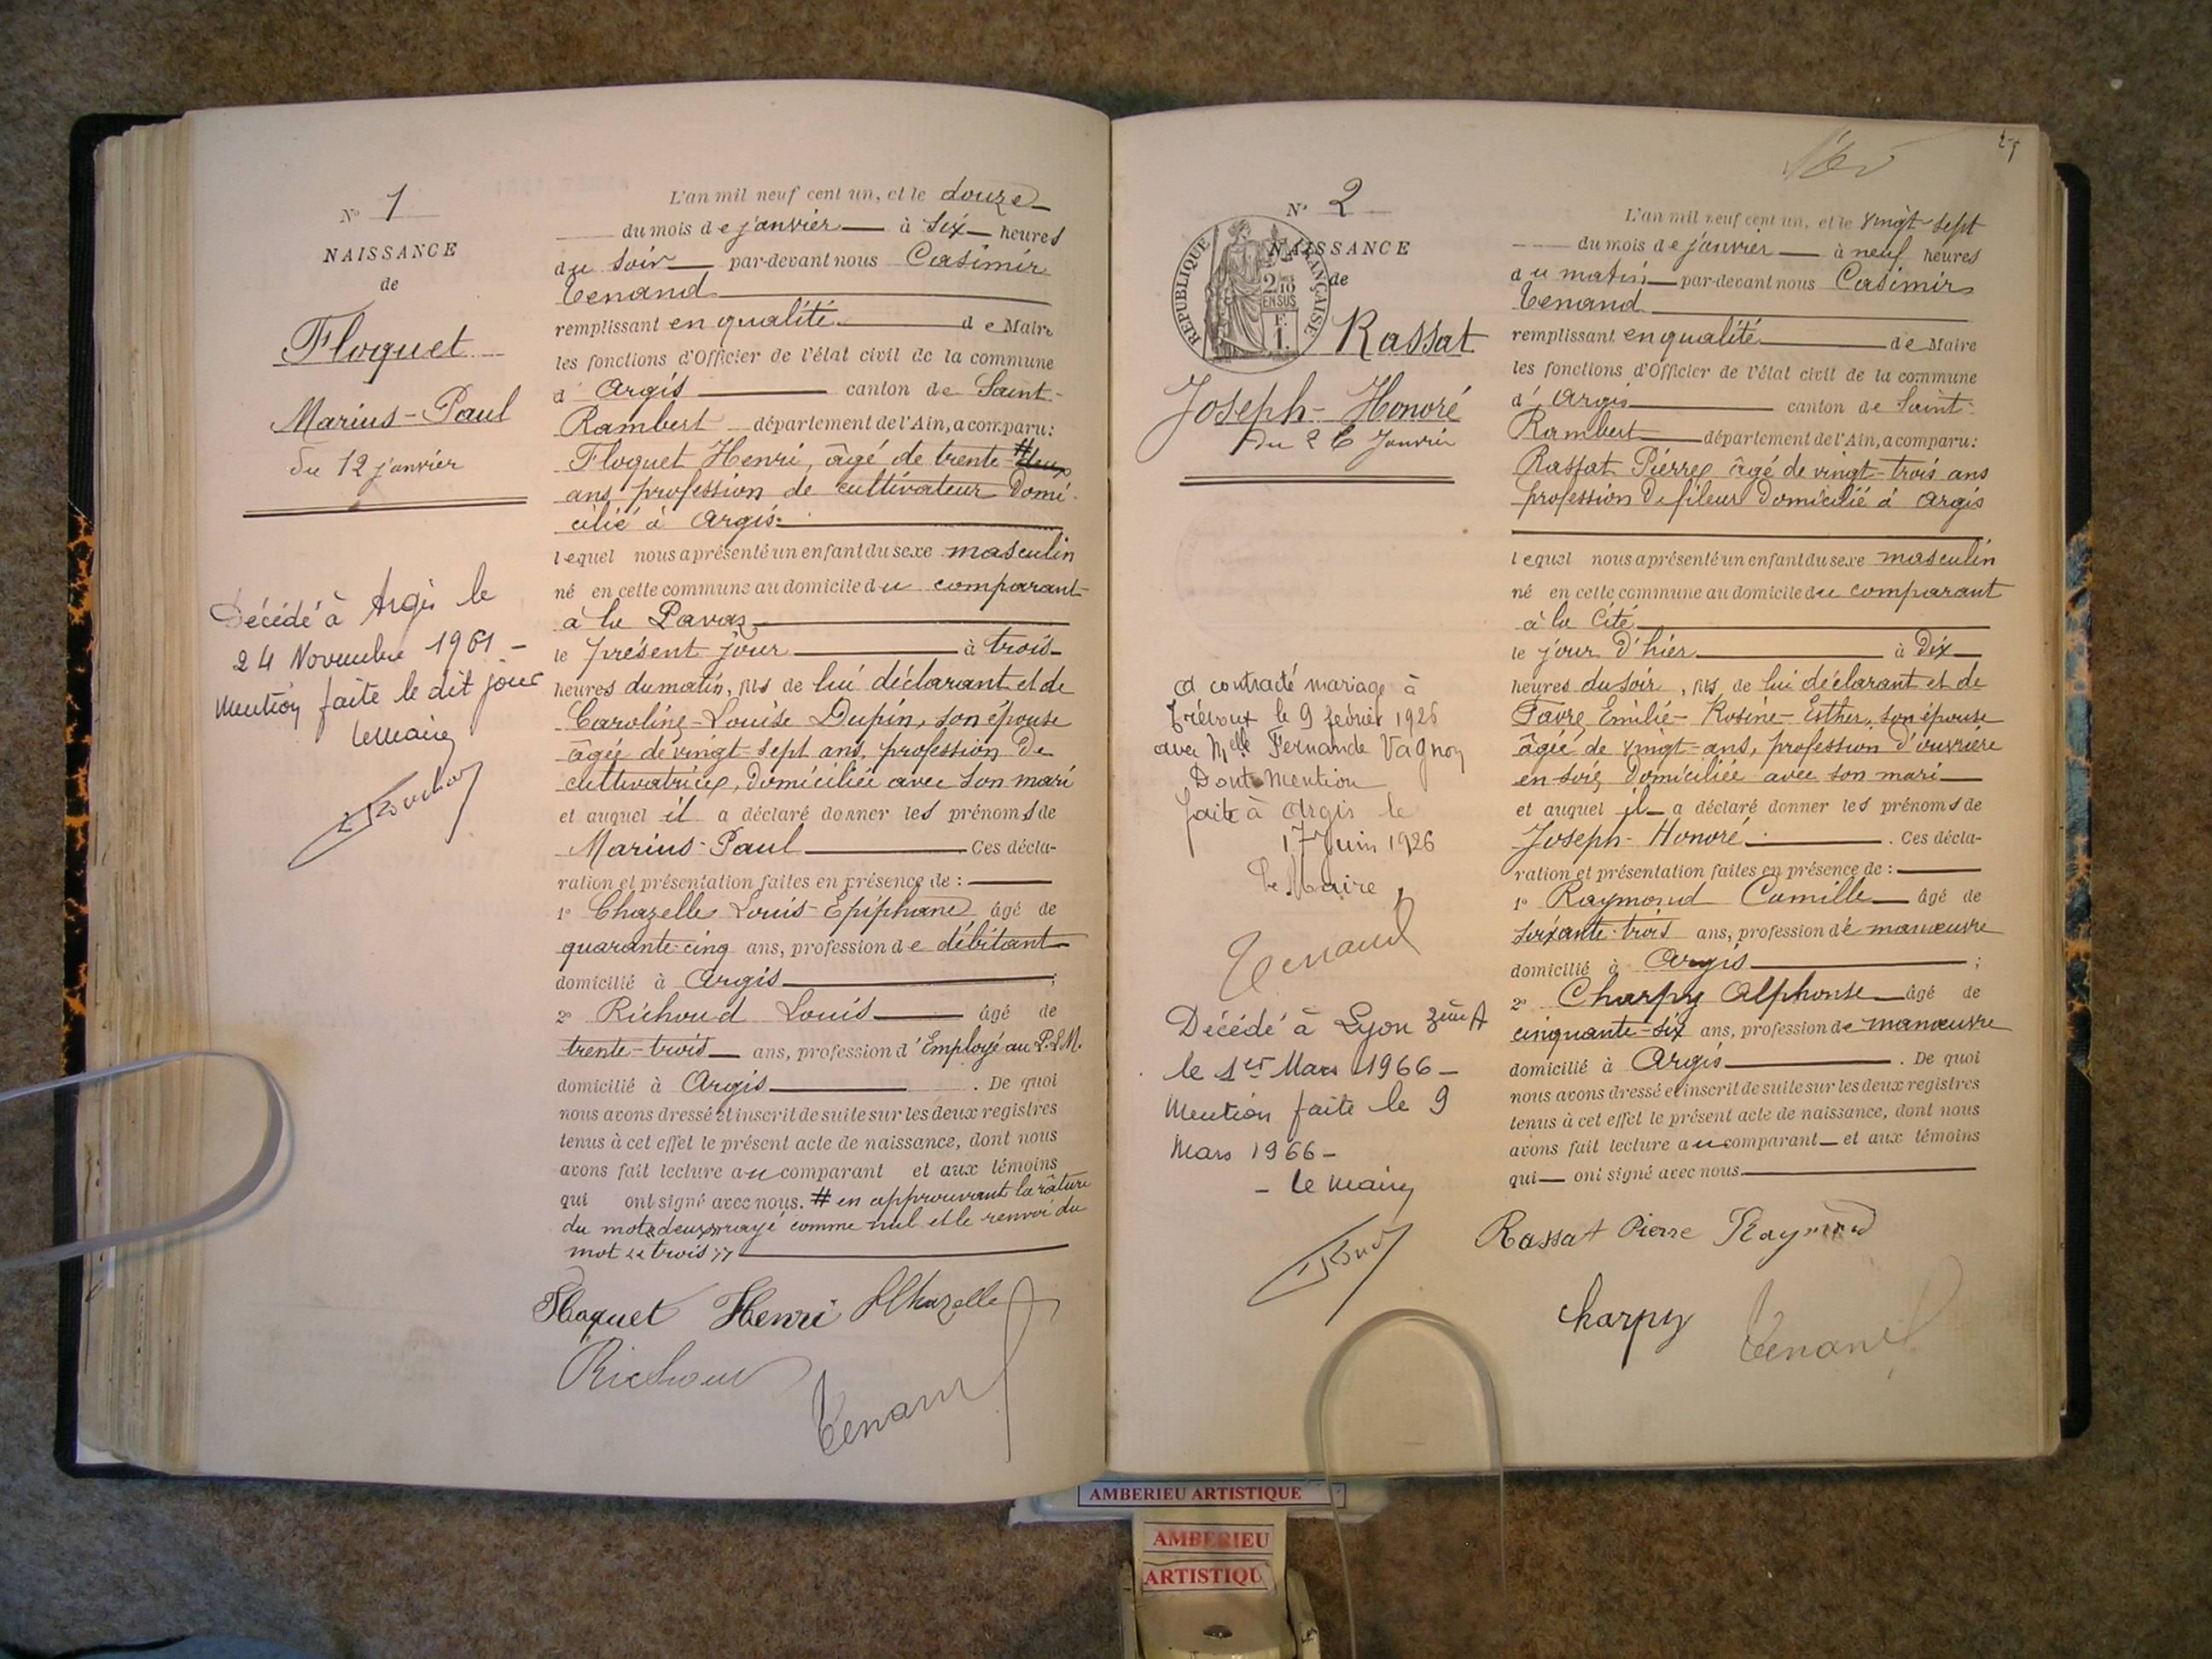 N° 1
NAISSANCE
de
Floquet
Marius-Paul
du 12 janvier
Décédé à Argis le
24 Novembre 1961 -
Mention faite le dit jour
Le Maire
L'an mil neuf cent un, et le douze
du mois de janvier à six heures
du soir par-devant nous Casimir
Tenand
remplissant en qualité de Maire
les fonctions d'Officier de l'état civil de la commune
d'Argis canton de Saint-
Rambert département de l'Ain, a comparu:
Floquet Henri, âgé de trente # deux
ans profession de cultivateur domi-
cilié à Argis.
lequel nous a présenté un enfant du sexe masculin
né en cette commune au domicile du comparant
à la Pavaz
le présent jour à trois
heures du matin, fils de lui déclarant et de
Caroline-Louise Dupin, son épouse
âgée de vingt-sept ans, profession de
cultivatrice, domiciliée avec son mari
et auquel il a déclaré donner les prénoms de
Marius-Paul Ces décla-
ration et présentation faites en présence de :
1° Chazelle Louis-Epiphane âgé de
quarante-cinq ans, profession de débitant
domicilié à Argis ;
2° Richoud Louis âgé de
trente-trois ans, profession d'Employé au P.L.M.
domicilié à Argis . De quoi
nous avons dressé et inscrit de suite sur les deux registres
tenus à cet effet le présent acte de naissance, dont nous
avons fait lecture au comparant et aux témoins
qui ont signé avec nous. # en approuvant la râture
du mot «deux» rayé comme nul et le renvoi du
mot «trois»
Floquet Henri Chazelle
Richoud
Tenand
N° 2
NAISSANCE
de
RÉPUBLIQUE FRANÇAISE
2/10
EN SUS
F.
1.
Rassat
Joseph-Honoré
du 26 Janvier
a contracté mariage à
Trévoux le 9 février 1926
avec Melle Fernande Vagnon
Dont Mention
faite à Argis le
17 Juin 1926
Le Maire
Tenand
Décédé à Lyon 3ème A
le 1er Mars 1966 -
Mention faite le 9
Mars 1966 -
- Le Maire
L'an mil neuf cent un, et le vingt-sept
du mois de janvier à neuf heures
du matin par-devant nous Casimir
Tenand
remplissant en qualité de Maire
les fonctions d'Officier de l'état civil de la commune
d'Argis canton de Saint-
Rambert département de l'Ain, a comparu:
Rassat Pierre, âgé de vingt-trois ans
profession de fileur domicilié à Argis
lequel nous a présenté un enfant du sexe masculin
né en cette commune au domicile du comparant
à la Cité
le jour d'hier à dix
heures du soir, fils de lui déclarant et de
Favre Emilie-Rosine-Esther, son épouse
âgée de vingt-ans, profession d'ouvrière
en soie, domiciliée avec son mari
et auquel il a déclaré donner les prénoms de
Joseph-Honoré . Ces décla-
ration et présentation faites en présence de :
1° Raymond Camille âgé de
soixante-trois ans, profession de manœuvre
domicilié à Argis ;
2° Charpy Alphonse âgé de
cinquante-six ans, profession de manœuvre
domicilié à Argis . De quoi
nous avons dressé et inscrit de suite sur les deux registres
tenus à cet effet le présent acte de naissance, dont nous
avons fait lecture au comparant et aux témoins
qui ont signé avec nous
Rassat Pierre Raymond
Charpy Tenand
AMBERIEU ARTISTIQUE
AMBERIEU
ARTISTIQU